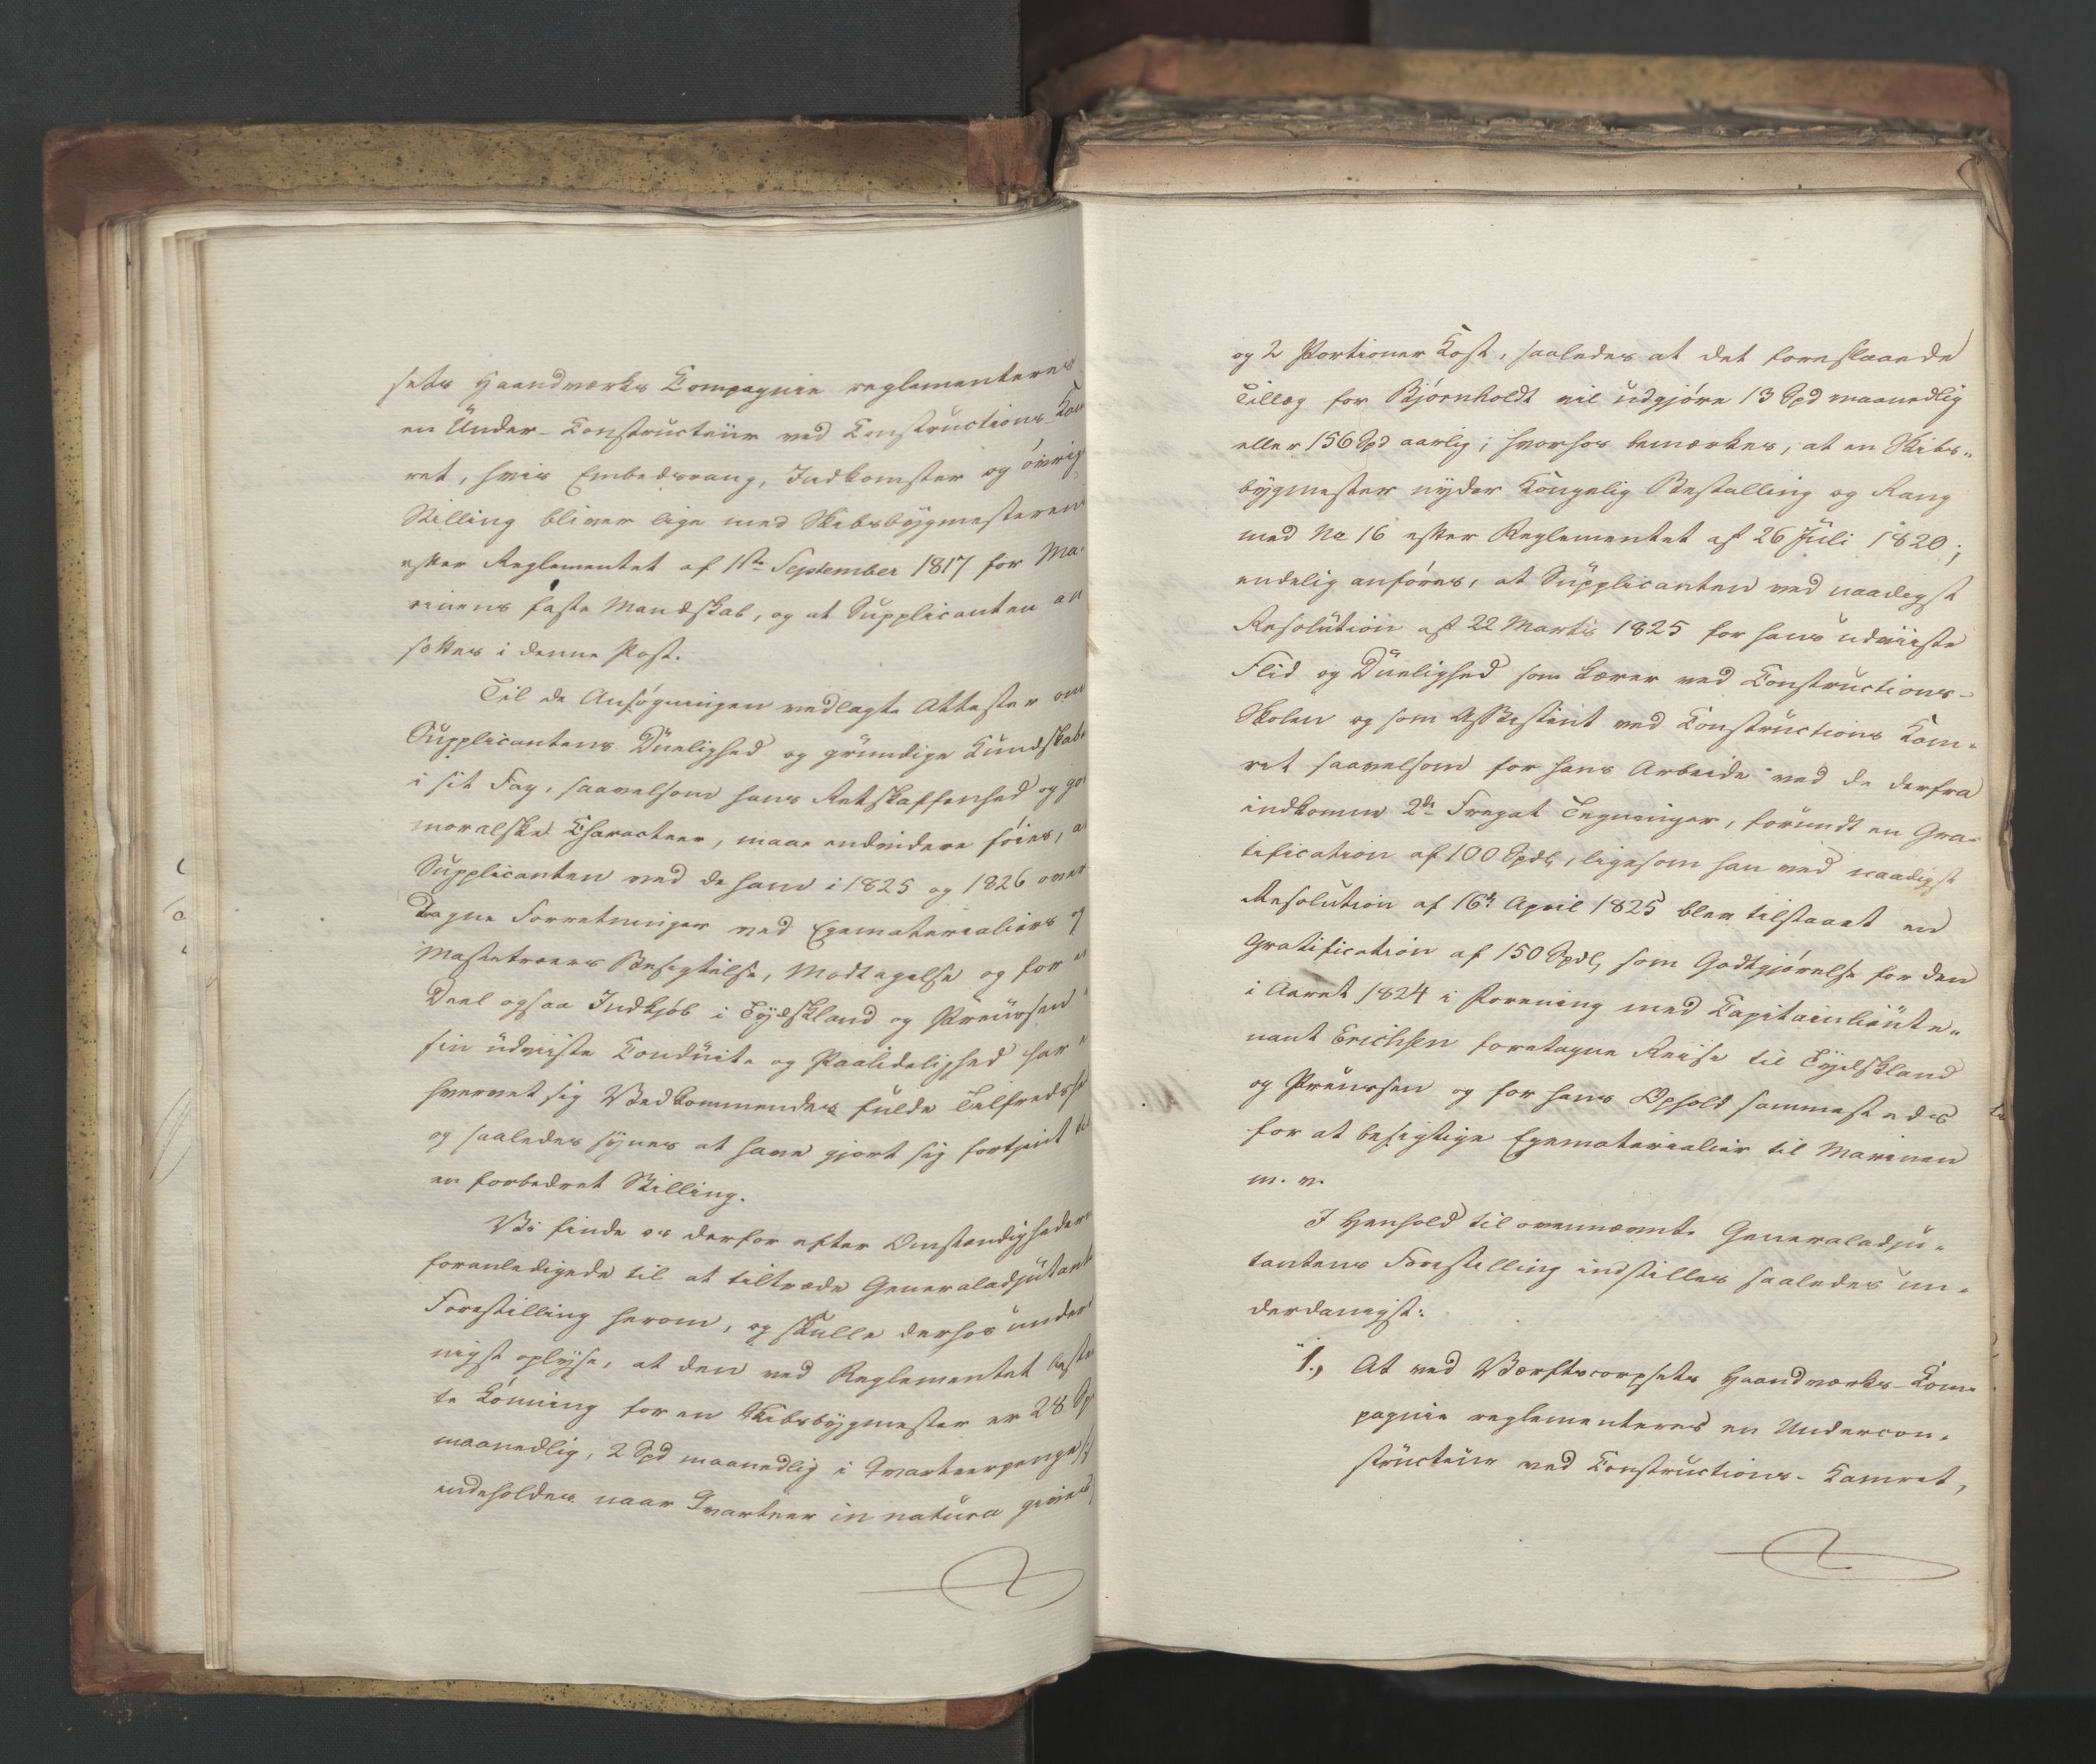 sets Haandværks Compagnie reglementeres
en Under-Constructeur ved Constructions-Kam
ret, hvis Embedsrang, Indkomster og øvrig
Stilling bliver lige med Skibsbygmesteren
efter Reglementet af 1ste September 1817 for Ma-
rinens faste Mandskab, og at Supplicanten an
sættes i denne Post.
Til de Ansøgningen vedlagte Attester om
Supplicantens Duelighed og grundige Kundskab
i sit Fag, saavelsom hans Retskaffenhed og go
moralske Characteer, maae endvidere føies, a
Supplicanten ved de ham i 1825 og 1826 over
dragne Forretninger ved Egematerialiers og
Mastetræers Besigtelse, Modtagelse og for e
Deel ogsaa Indkjøb i Tydskland og Preussen
sin udviiste Conduite og Paalidelighed har
hvervet sig Vedkommendes fulde Tilfredshe
og saaledes synes at have gjort sig fortjent til
en forbedret Stilling.
Vi finde os derfor efter Omstændighedern
foranledigede til at tiltræde Generaladjutant
Forestilling herom, og skulle derhos under
nigst oplyse, at den ved Reglementet faste
te Lønning for en Skibsbygmester er 28 Sp
maanedlig, 2 Spd maanedlig i Qvarteerpenge
indeholdes naar Qvarteer in natura gives
og 2 Portioner Kost, saaledes at det foreslaaede
Tillæg for Bjørnholdt vil udgjøre 13 Spd maanedlig
eller 156 Spd aarlig; hvorhos bemærkes, at en Skibs-
bygmester nyder Kongelig Bestalling og Rang
med No 16 efter Reglementet af 26 Juli 1820;
endelig anføres, at Supplicanten ved naadigst
Resolution af 22 Marts 1825 for hans udviiste
Flid og Duelighed som Lærer ved Constructions-
Skolen og som Assistent ved Constructions Kam-
ret saavelsom for hans Arbeide ved de derfra
indkomne 2de Fregat Tegninger, forundt en Gra-
tification af 100 Spdl, ligesom han ved naadigst
Resolution af 16de April 1825 blev tilstaaet en
Gratification af 150 Spdl, som Godtgjørelse for den
i Aaret 1824 i Forening med Capitainlieute-
nant Erichsen foretagne Reise til Tydskland
og Preussen og for hans Ophold sammesteds
for at besigtige Egematerialier til Marinen
m. v.
I Henhold til ovennævnte Generaladju-
tantens Forestilling indstilles saaledes un-
derdanigst:
"1., At ved Værftscorpsets Haandværks-Com-
pagnie reglementeres en Undercon-
structeur ved Constructions-Kamret,